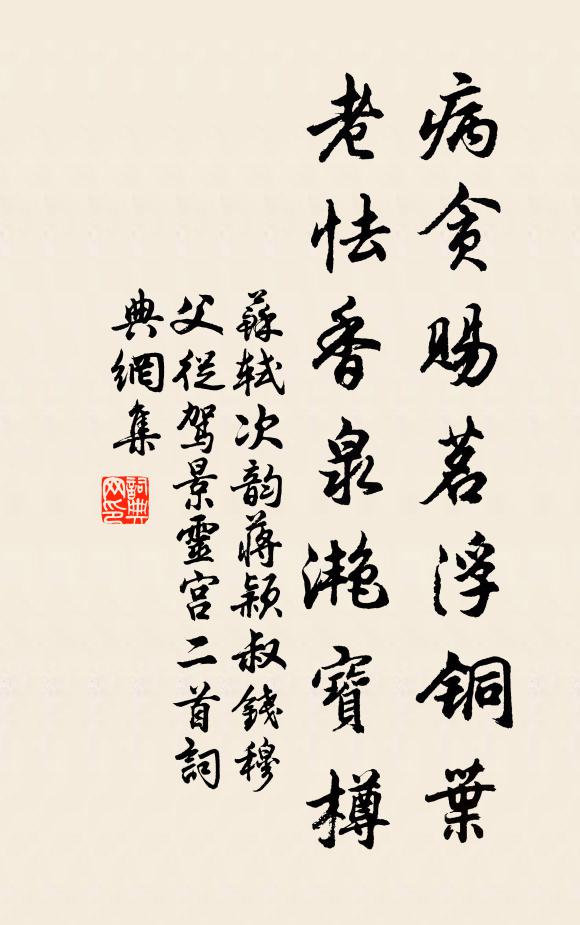 病貪賜茗浮銅葉
老怯香泉灧寶樽
蘇軾次韵蔣穎叔錢穆
父從駕景靈宮二首詞
典網集
詞典网印